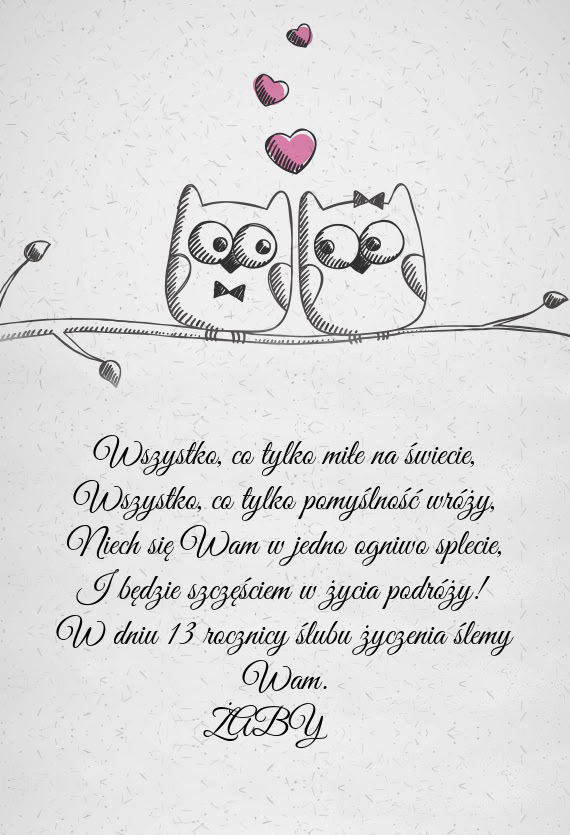 Wszystko, co tylko miłe na świecie,
Wszystko, co tylko pomyślność wróży,
Niech się Wam w jedno ogniwo splecie,
I będzie szczęściem w życia podróży!
W dniu 13 rocznicy ślubu życzenia ślemy
Wam.
ŻABY